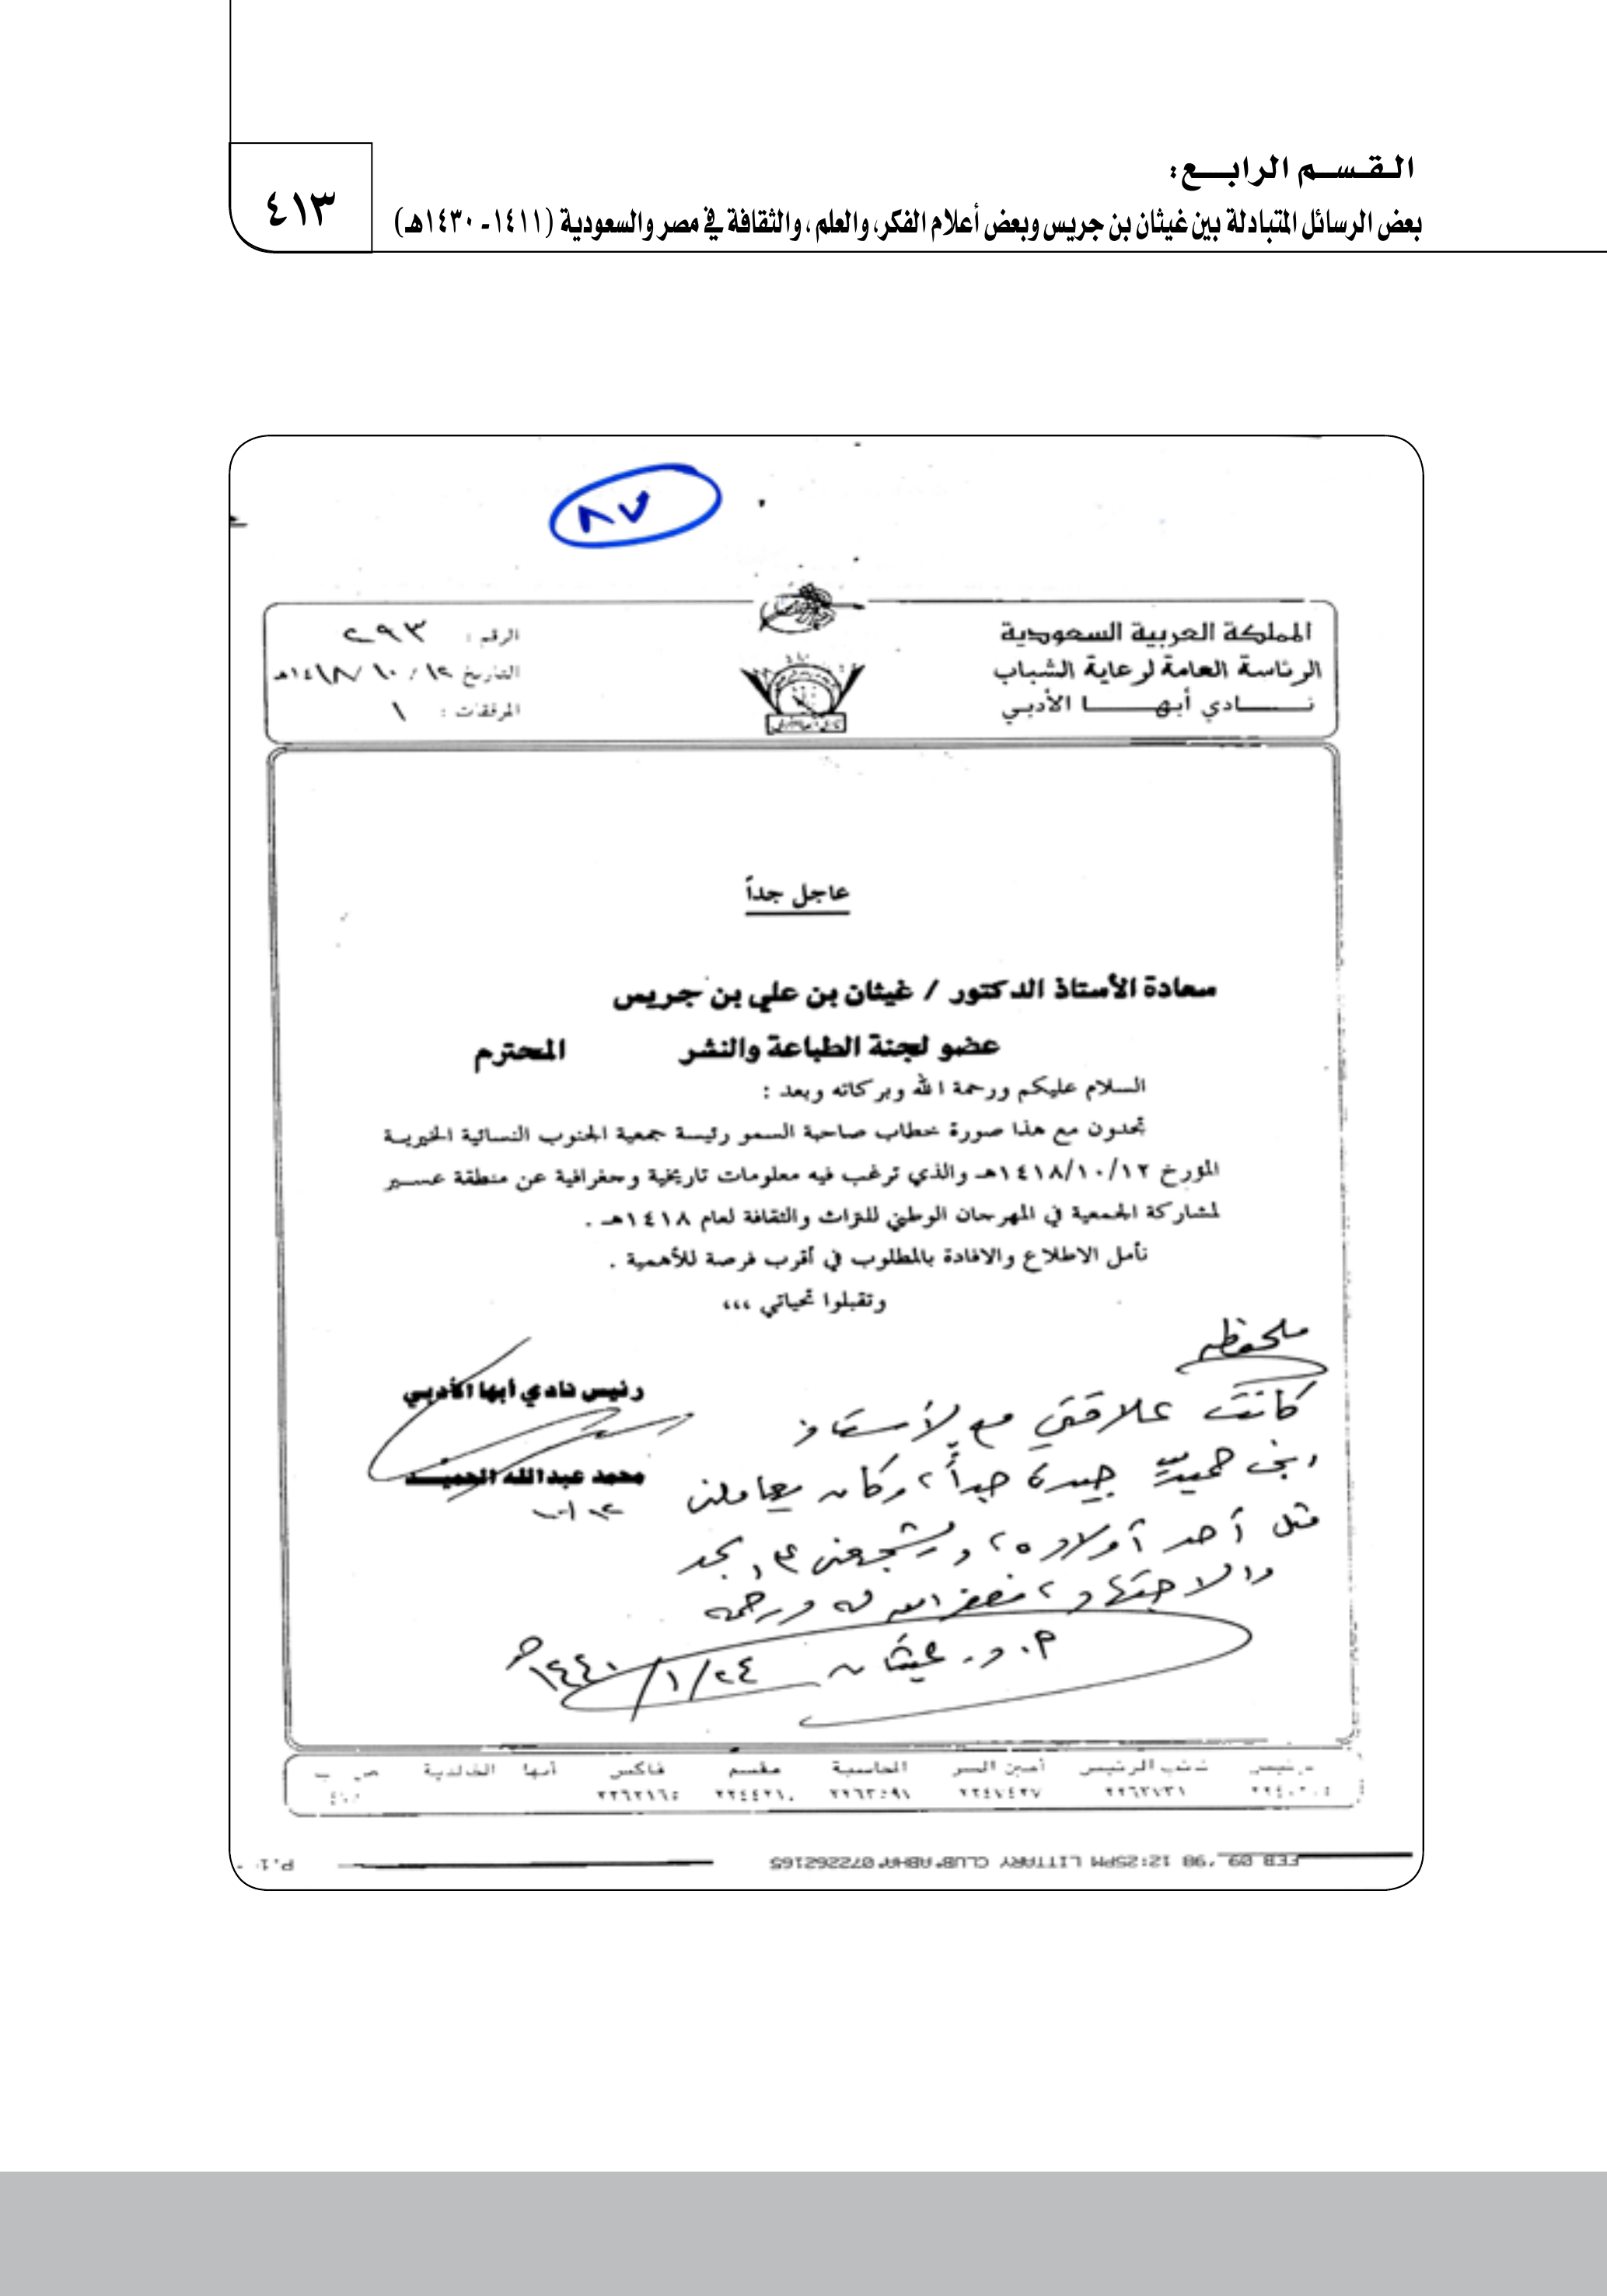 القسم الرابع:
بعض الرسائل المتبادلة بين غيثان بن جريس وبعض أعلام الفكر، والعلم، والثقافة في مصر والسعودية (١٤١١- ١٤٣٠هـ)
٤١٣
٨٧
المملكة العربية السعودية
الرئاسة العامة لرعاية الشباب
نادي أبها الأدبي
الرقم : ٢٩٣
التاريخ ١٢ / ١٠ / ١٤١٨هـ
المرفقات : ١
عاجل جداً
سعادة الأستاذ الدكتور / غيثان بن علي بن جريس
عضو لجنة الطباعة والنشر المحترم
السلام عليكم ورحمة الله وبركاته وبعد :
تجدون مع هذا صورة خطاب صاحبة السمو رئيسة جمعية الجنوب النسائية الخيرية
المؤرخ ١٤١٨/١٠/١٢هـ والذي ترغب فيه معلومات تاريخية وجغرافية عن منطقة عسير
لمشاركة الجمعية في المهرجان الوطني للتراث والثقافة لعام ١٤١٨هـ .
نأمل الاطلاع والافادة بالمطلوب في أقرب فرصة للأهمية .
وتقبلوا تحياتي ،،،
رئيس نادي أبها الأدبي
محمد عبدالله الحميد
ملحوظه
كانت علاقتي مع الأستاذ
ابن حميد جيدة جداً، وكان يعاملني
مثل أحد أولاده، ويشجعني على الجد
والاجتهاد، فغفر الله له ورحمه
أ. د. غيثان ١٤٤٠/١/٢٤هـ
الرئيس نائب الرئيس أمين السر المحاسبة مقسم فاكس أبها الخالدية ص ب
٢٢٦٢٧٣١ ٢٢٤٧٤٢٧ ٢٢٦٢١٦٥
FEB 09 '98 12:25PM LITTARY CLUB*ABHA*072262165